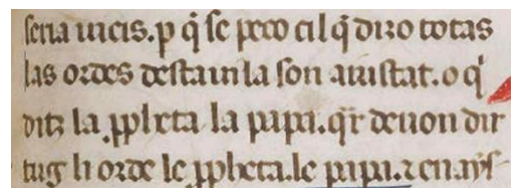 seria uicis. p q̄ se peco cil q̄ dizo totas
las ordes desta uila son aiustat. o q̄
ditz la ꝓpheta la papa. qr̄ deuon dir
tug li orde le ꝓpheta. le papa. ⁊ enays